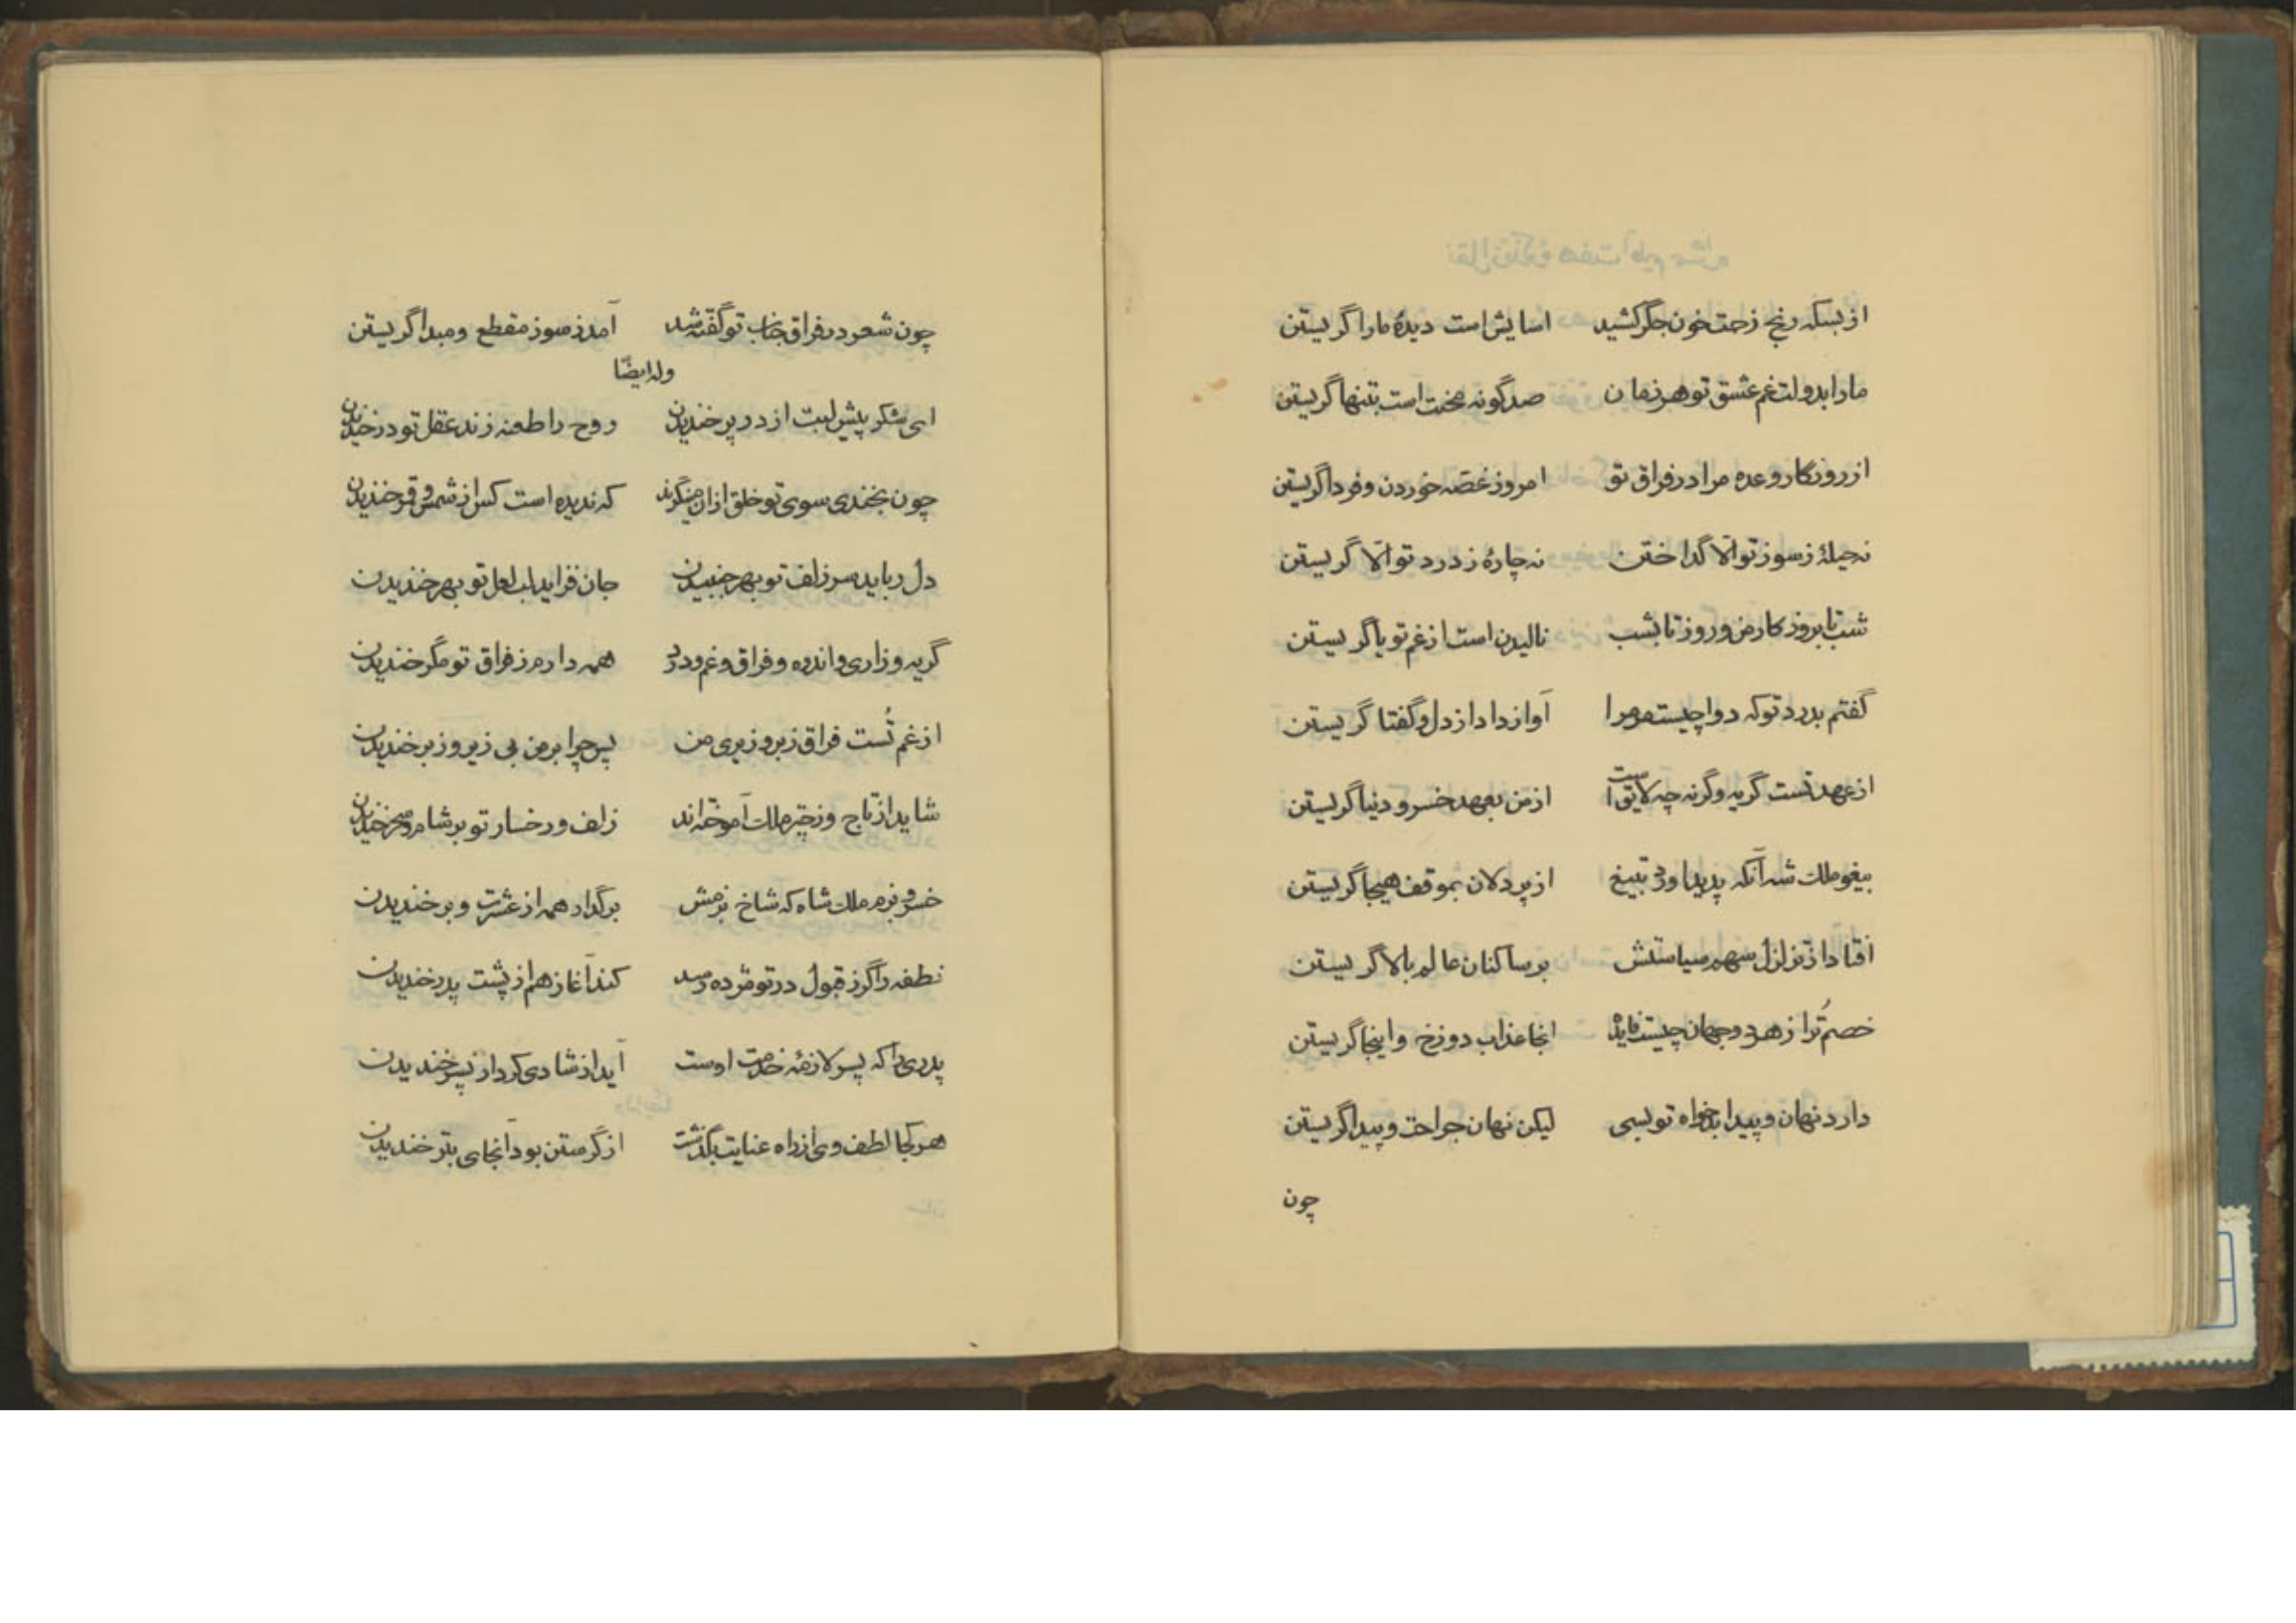 از بسکه رنج زحمت خون جگر کشید اسایش است دیدهٔ ما را گریستن
ما را بدولت غم عشق تو هر زمان صد گونه محنت است بتنها گریستن
از روزگار وعده مرا در فراق تو امروز غصّه خوردن و فردا گریستن
نه حیلهٔ ز سوز تو الّا گداختن نه چارهٔ ز درد تو الّا گریستن
شب تا بروز کار من و روز تا بشب نالیدن است از غم تو یا گریستن
گفتم بدرد تو که دوا چیست مر مرا آواز داد از دل و گفتا گریستن
از عهد تست گریه وگرنه چه لایق است از من بعهد خسرو دنیا گریستن
بیغو ملک شه آنکه پدید اورد بتیغ از پر دلان بموقف هیجا گریستن
افتاد از تزلزل سهم سیاستش بر ساکنان عالم بالا گریستن
خصم تُرا ز هر دو جهان چیست فایده انجا عذاب دوزخ و اینجا گریستن
دارد نهان و پیدا بدخواه تو بسی لیکن نهان جراحت و پیدا گریستن
چون
چون شعر در فراق جناب تو گفته شد آمد ز سوز مقطع و مبدا گریستن
وله ایضًا
ای شکر پیش لبت از در بر خندیدن روح را طعنه زند عقل تو در خندیدن
چون بخندی سوی تو خلق ازان مینگرند که ندیده است کس از شمس و قمر خندیدن
دل رباید سر زلف تو بهر جنبیدن جان فزاید لب لعل تو بهر خندیدن
گریه و زاری و اندوه و فراق و غم و درد همه دارم ز فراق تو مگر خندیدن
از غم تُست فراق زبر و زیری من پس چرا بر من بی زیر و زبر خندیدن
شاید از تاج و زنجیر ملک آموخته‌اند زلف و رخسار تو بر شام و سحر خندیدن
خسرو بزم ملک شاه که شاخ بزمش برگ دارد همه از عشرت و بر خندیدن
نطفه را گر ز قبول در تو مژده رسد کند آغاز هم از پشت پدر خندیدن
پدری را که پسر لازمهٔ خدمت اوست آید از شادی کردار پسر خندیدن
هر کجا لطف وی از راه عنایت بگذشت از گرستن بود آنجای بتر خندیدن